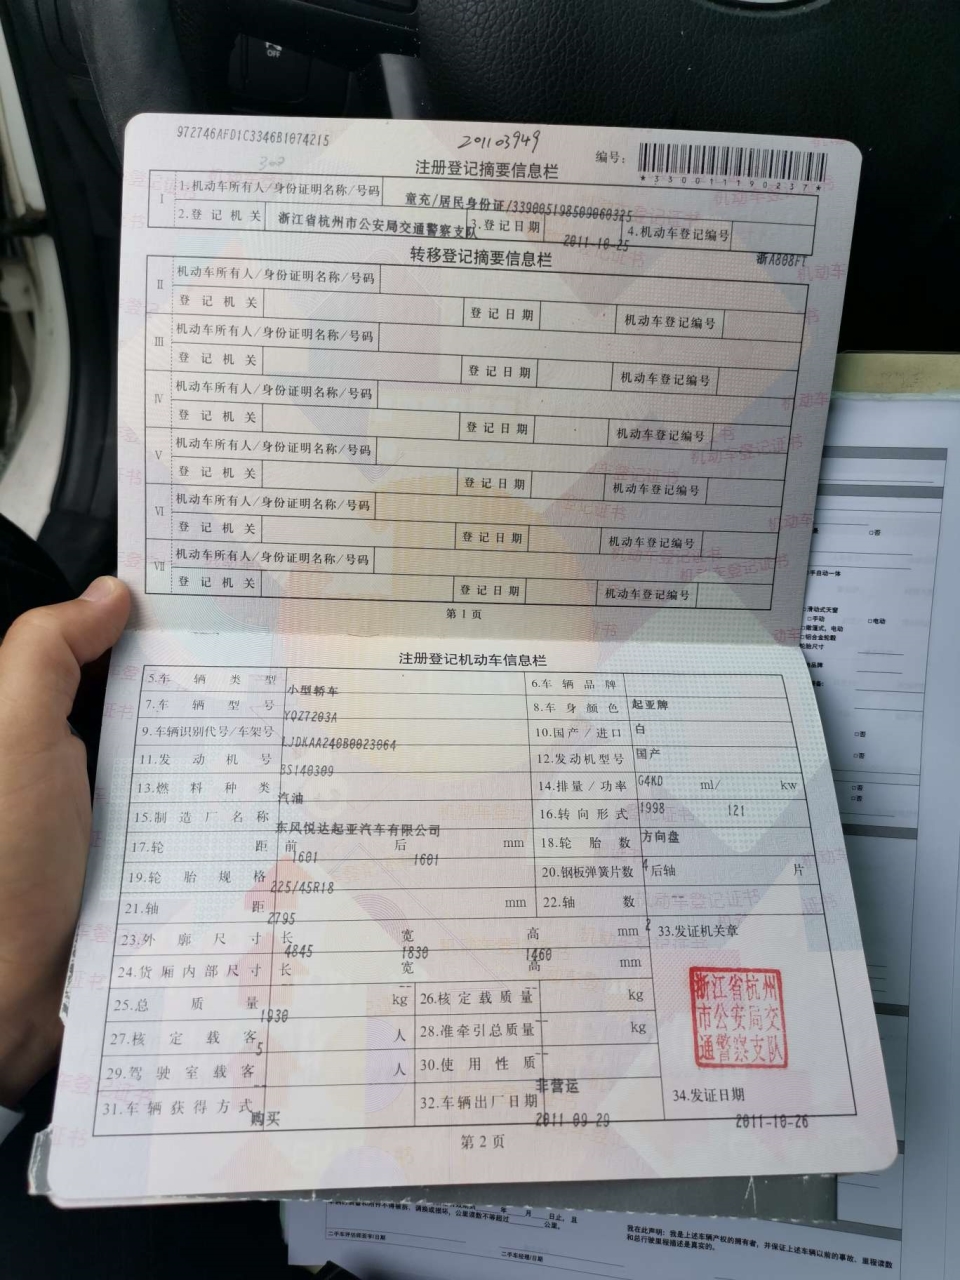 OFF
972746AFD1C3346B1074215
201103949
编号：
*330011190237*
注册登记摘要信息栏
I
1.机动车所有人/身份证明名称/号码 童充/居民身份证/339005198509060325
2.登记机关 浙江省杭州市公安局交通警察支队 3.登记日期 2011-10-25 4.机动车登记编号 浙A808FT
转移登记摘要信息栏
II 机动车所有人/身份证明名称/号码
登记机关 登记日期 机动车登记编号
III 机动车所有人/身份证明名称/号码
登记机关 登记日期 机动车登记编号
IV 机动车所有人/身份证明名称/号码
登记机关 登记日期 机动车登记编号
V 机动车所有人/身份证明名称/号码
登记机关 登记日期 机动车登记编号
VI 机动车所有人/身份证明名称/号码
登记机关 登记日期 机动车登记编号
VII 机动车所有人/身份证明名称/号码
登记机关 登记日期 机动车登记编号
第1页
注册登记机动车信息栏
5.车辆类型 小型轿车 6.车辆品牌 起亚牌
7.车辆型号 YQZ7203A 8.车身颜色 白
9.车辆识别代号/车架号 LJDKAA240B0023064 10.国产/进口 国产
11.发动机号 BS140309 12.发动机型号 G4KD
13.燃料种类 汽油 14.排量/功率 1998 ml/ 121 kw
15.制造厂名称 东风悦达起亚汽车有限公司 16.转向形式 方向盘
17.轮距 前 1601 后 1601 mm 18.轮胎数 4
19.轮胎规格 225/45R18 20.钢板弹簧片数 后轴 -- 片
21.轴距 2795 mm 22.轴数 2
23.外廓尺寸 长 4845 宽 1830 高 1460 mm 33.发证机关章
24.货厢内部尺寸 长 -- 宽 -- 高 -- mm
25.总质量 1930 kg 26.核定载质量 -- kg
27.核定载客 5 人 28.准牵引总质量 -- kg
29.驾驶室载客 -- 人 30.使用性质 非营运
31.车辆获得方式 购买 32.车辆出厂日期 2011-09-29 34.发证日期 2011-10-26
浙江省杭州
市公安局交
通警察支队
第2页
□否
手自动一体
滑动式天窗
□手动 □电动
□铝合金轮毂
轮胎尺寸
□否
□否
□否
□否
年 月 日止，且
公里读数不等超过 公里。
二手车评估师签字/日期
二手车经理/日期
我在此声明：我是上述车辆产权的拥有者，并保证上述车辆以前的事故、里程读数
和总行驶里程描述是真实的。